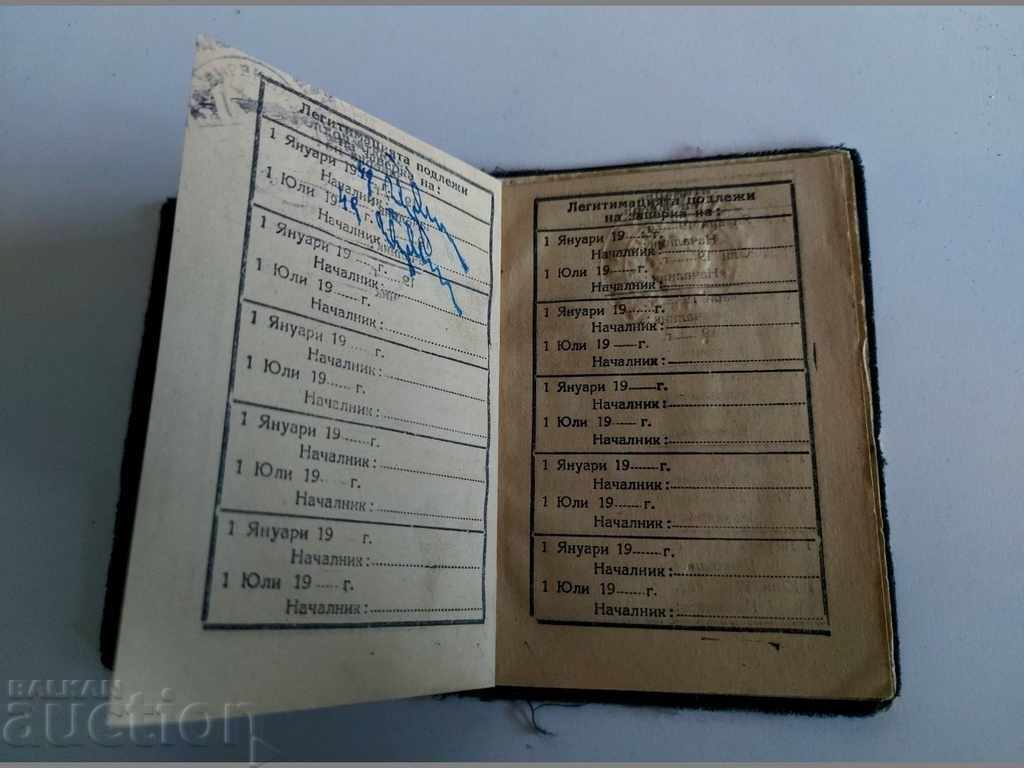 Легитимацията подлежи
на заверка на:
1 Януари 1949 г.
Началник:
1 Юли 1949 г.
Началник:
1 Януари 19 г.
Началник:
1 Юли 19 г.
Началник:
1 Януари 19 г.
Началник:
1 Юли 19 г.
Началник:
1 Януари 19 г.
Началник:
1 Юли 19 г.
Началник:
1 Януари 19 г.
Началник:
1 Юли 19 г.
Началник:
Легитимацията подлежи
на заверка на:
1 Януари 19 г.
Началник:
1 Юли 19 г.
Началник:
1 Януари 19 г.
Началник:
1 Юли 19 г.
Началник:
1 Януари 19 г.
Началник:
1 Юли 19 г.
Началник:
1 Януари 19 г.
Началник:
1 Юли 19 г.
Началник:
1 Януари 19 г.
Началник:
1 Юли 19 г.
Началник:
BALKAN
auction